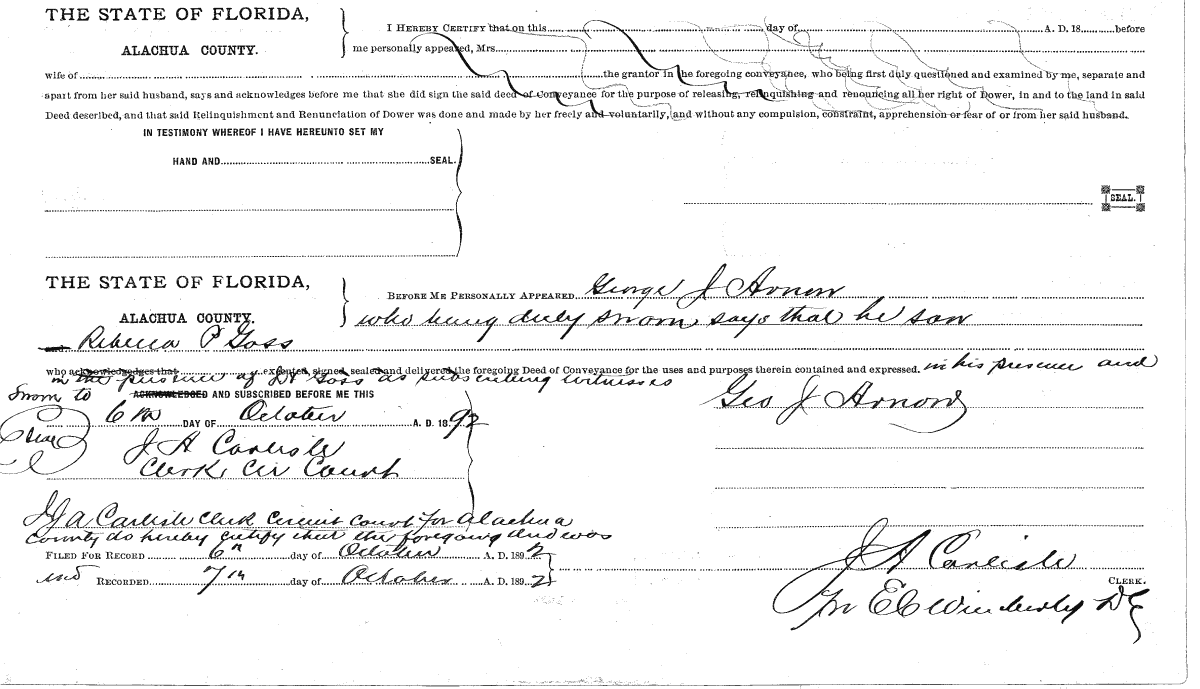 THE STATE OF FLORIDA,
ALACHUA COUNTY.
I HEREBY CERTIFY that on this day of A. D. 18 before
me personally appeared, Mrs.
wife of the grantor in the foregoing conveyance, who being first duly questioned and examined by me, separate and
apart from her said husband, says and acknowledges before me that she did sign the said deed of Conveyance for the purpose of releasing, relinquishing and renouncing all her right of Dower, in and to the land in said
Deed described, and that said Relinquishment and Renunciation of Dower was done and made by her freely and voluntarily, and without any compulsion, constraint, apprehension or fear of or from her said husband.
IN TESTIMONY WHEREOF I HAVE HEREUNTO SET MY
HAND AND SEAL.
SEAL.
THE STATE OF FLORIDA,
ALACHUA COUNTY.
BEFORE ME PERSONALLY APPEARED George J Arnow
who being duly sworn says that he saw
Rebecca P Goss
who acknowledges that executed, signed, sealed and delivered the foregoing Deed of Conveyance for the uses and purposes therein contained and expressed. in his presence and
in the presence of as subscribing witnesses
Sworn to ACKNOWLEDGED AND SUBSCRIBED BEFORE ME THIS
6th DAY OF October A. D. 1892
Seal
J A Carlisle
Clerk Cir Court
Geo J Arnow
I J A Carlisle Clerk Circuit Court for Alachua
County do hereby certify that the foregoing deed was
FILED FOR RECORD 6th day of October A. D. 1892
and RECORDED 7th day of October A. D. 1892
J A Carlisle
CLERK.
Per E C Wimberly DC